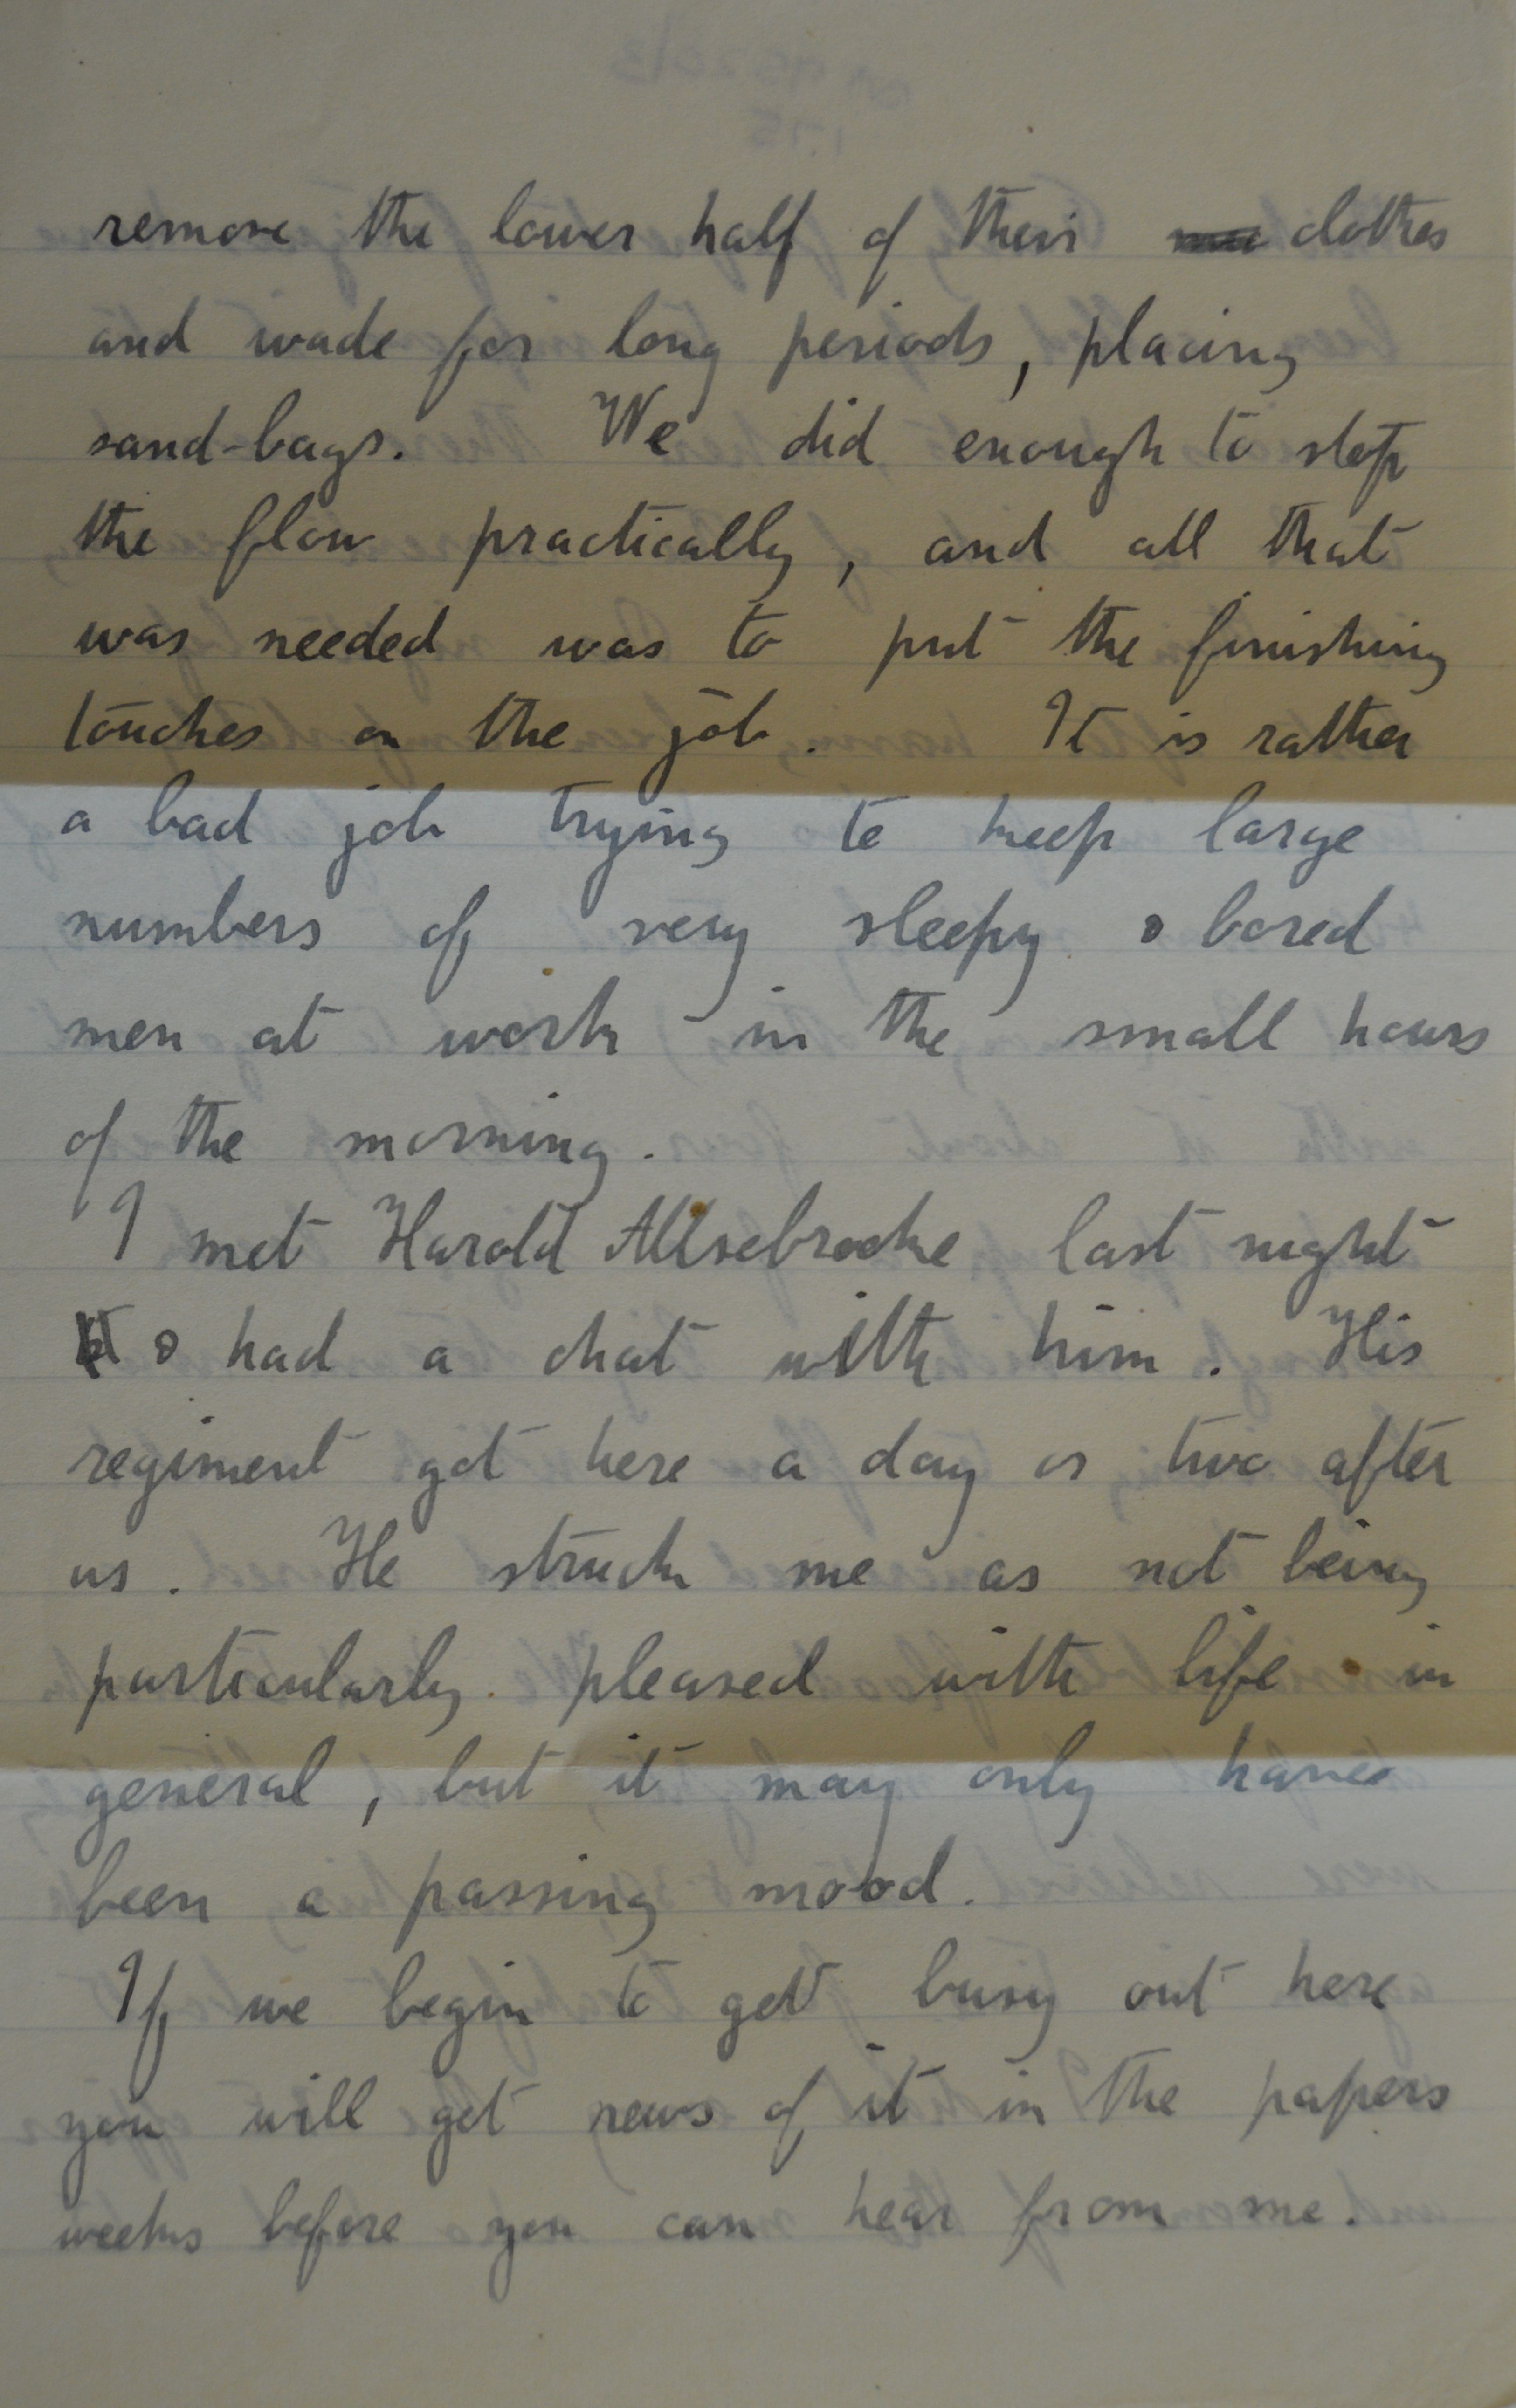 remove the lower half of their clothes
and wade for long periods, placing
sand-bags. We did enough to stop
the flow practically, and all that
was needed was to put the finishing
touches on the job. It is rather
a bad job trying to keep large
numbers of very sleepy & bored
men at work in the small hours
of the morning.
I met Harold Allsebrooke last night
& had a chat with him. His
regiment got here a day or two after
us. He struck me as not being
particularly pleased with life in
general, but it may only have
been a passing mood.
If we begin to get busy out here
you will get news of it in the papers
weeks before you can hear from me.